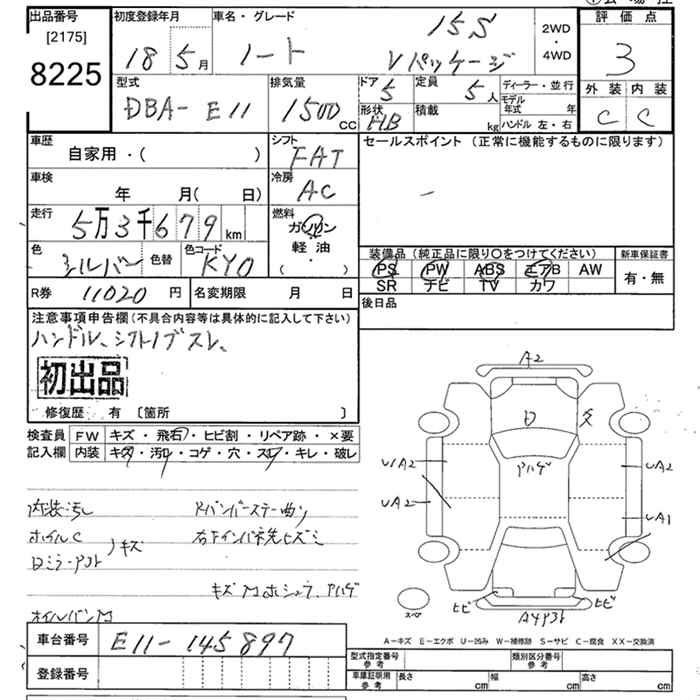 出品番号
[2175]
8225
初度登録年月
18 5月
車名・グレード
ノート
15S
Vパッケージ
2WD
・
4WD
評価点
3
型式
DBA-E11
排気量
1500cc
ドア
5
定員
5人
ディーラー・並行
形状
HB
積載
kg
モデル年式 年
ハンドル 左・右
外装 内装
C C
車歴
自家用・( )
シフト
FAT
セールスポイント(正常に機能するものに限ります)
車検
年 月( 日)
冷房
AC
走行
5万3千679km
燃料
ガソリン
軽油
・
( )
色
シルバー
色替
色コード
KY0
装備品(純正品に限り〇をつけてください)
新車保証書
PS PW ABS エアB AW
SR ナビ TV カワ
有・無
R券 11020円
名変期限 月 日
後日品
注意事項申告欄(不具合内容等は具体的に記入して下さい)
ハンドル、シフトノブスレ、
初出品
修復歴 有 [箇所 ]
検査員 FW キズ・飛石・ヒビ割・リペア跡・×要
記入欄 内装 キズ・汚れ・コゲ・穴・スレ・キレ・破レ
内装汚れ
ホイルC
キズ
オイルパンM
A2
U1A2
UA2
UA2
UA1
ヒビ
ヒビ
スペア
A-キズ E-エクボ U-凹み W-補修跡 S-サビ C-腐食 XX-交換済
車台番号 E11-145897
登録番号
型式指定番号
参考
類別区分番号
参考
車庫証明用
参考
長さ cm
幅 cm
高さ cm